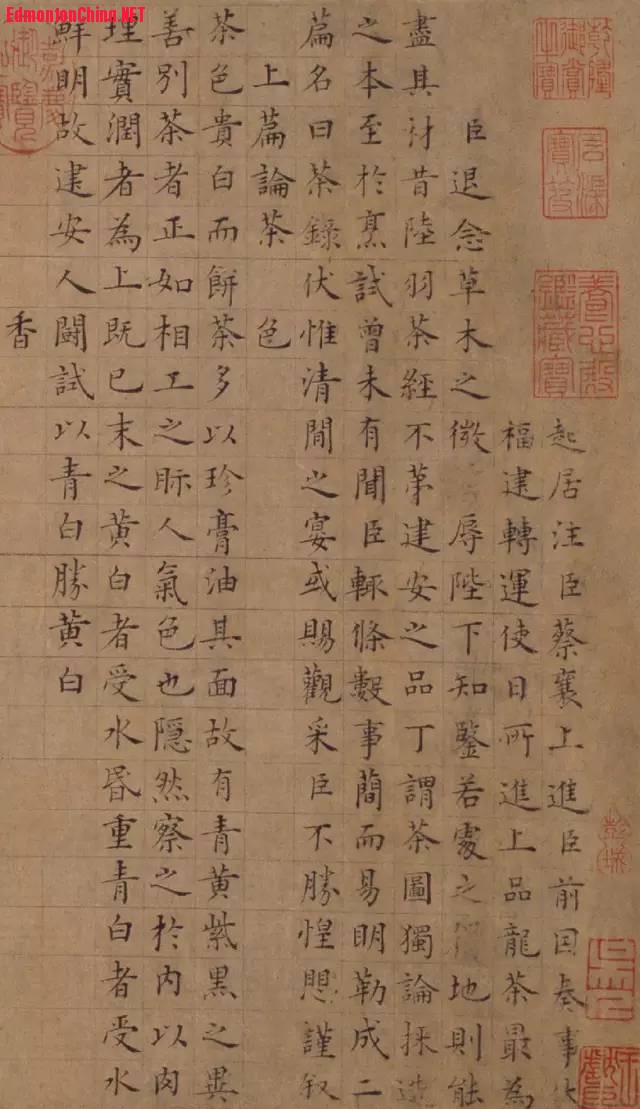 EdmontonChina.NET
乾隆御賞之寶
石渠寶笈
養心殿鑑藏寶
起居注臣蔡襄上進臣前因奏事伏
福建轉運使日所進上品龍茶最為
臣退念草木之微辱陛下知鑒若處之得地則能
盡其材昔陸羽茶經不苐建安之品丁謂茶圖獨論採造
之本至於烹試曾未有聞臣輒條數事簡而易明勒成二
篇名曰茶錄伏惟清閒之宴或賜觀采臣不勝惶懼謹叙
上篇論茶 色
茶色貴白而餅茶多以珍膏油其面故有青黃紫黑之異
善别茶者正如相工之眎人氣色也隱然察之於内以肉
理實潤者為上既已末之黃白者受水昬重青白者受水
鮮明故建安人鬬試以青白勝黃白
香
嘉慶御覽之寶